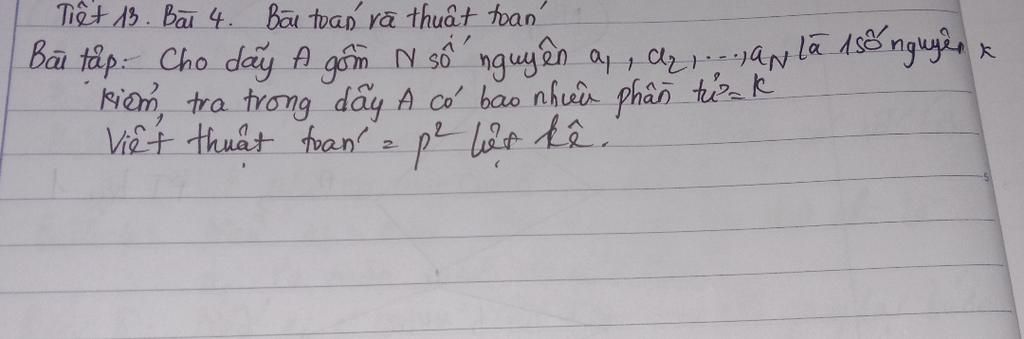 Tiết 13. Bài 4. Bài toán và thuật toán
Bài tập: Cho dãy A gồm N số nguyên a1, a2, ..., aN là 1 số nguyên k
kiểm tra trong dãy A có bao nhiêu phần tử = k
Viết thuật toán = p² liệt kê.